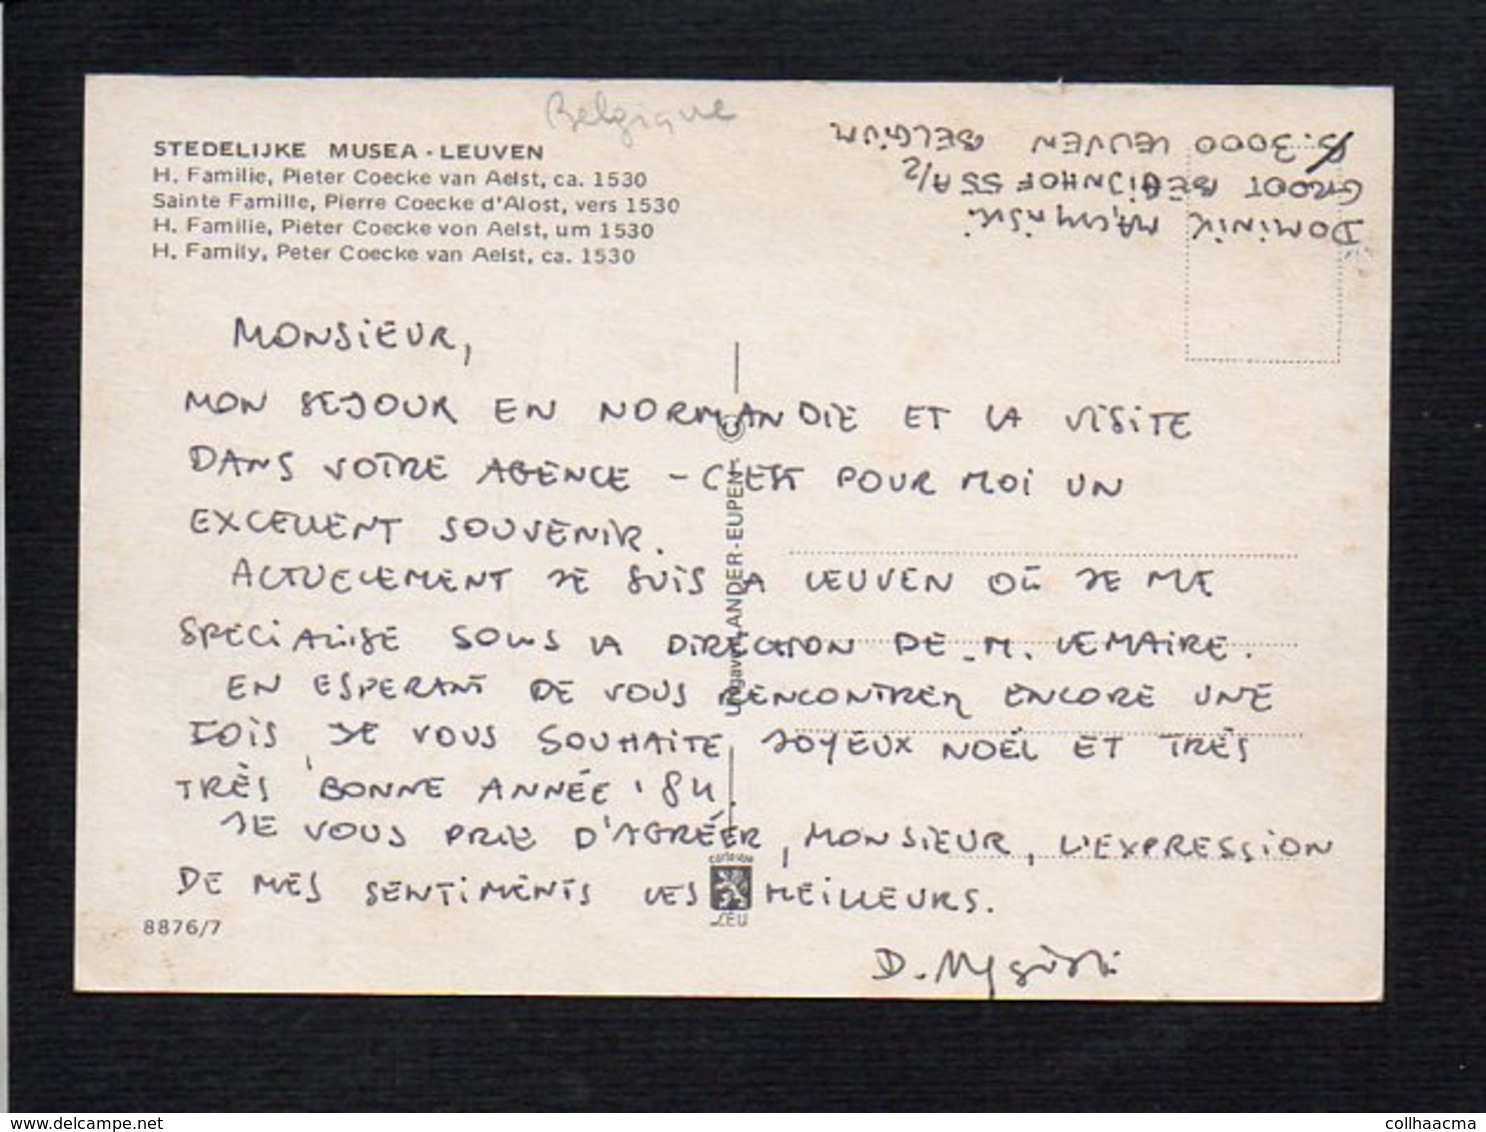 Belgique
STEDELIJKE MUSEA - LEUVEN
H. Familie, Pieter Coecke van Aelst, ca. 1530
Sainte Famille, Pierre Coecke d'Alost, vers 1530
H. Familie, Pieter Coecke von Aelst, um 1530
H. Family, Peter Coecke van Aelst, ca. 1530
DOMINIK
GROOT BEGIJNHOF 55A/2
B. 3000 LEUVEN BELGIUM
MONSIEUR,
MON SEJOUR EN NORMANDIE ET LA VISITE
DANS VOTRE AGENCE - C'EST POUR MOI UN
EXCELLENT SOUVENIR.
ACTUELEMENT JE SUIS A LEUVEN OÙ JE ME
SPECIALISE SOUS LA DIRECTION DE M. LEMAIRE.
EN ESPERANT DE VOUS RENCONTRER ENCORE UNE
FOIS, JE VOUS SOUHAITE JOYEUX NOËL ET TRÈS
TRÈS BONNE ANNÉE '84.
JE VOUS PRIE D'AGRÉER, MONSIEUR, L'EXPRESSION
DE MES SENTIMENTS LES MEILLEURS.
8876/7
LANDER-EUPEN ©
LEU
colhaacma